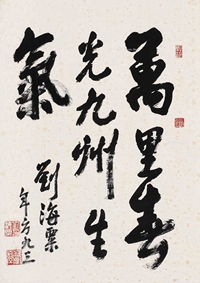 萬里春
光九州生
氣
劉海粟
年方九三